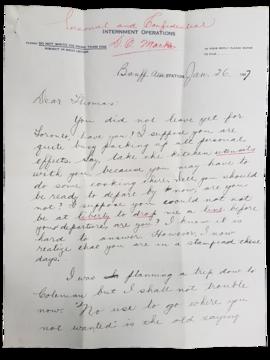 Personal and Confidential
INTERNMENT OPERATIONS
PLEASE DO NOT WRITE ON MORE THAN ONE
SUBJECT IN EACH LETTER
IN YOUR REPLY PLEASE REFER
TO FILE
Banff, STATION, Jan. 26, 1917
Dear Thomas:
You did not leave yet for
Toronto, have you? I suppose you are
quite busy packing up all personal
effects. Say, take the kitchen
with you because you may have to
do some cooking there. Well you should
be ready to depart by now, are you
not? I suppose you could not not
be at liberty to drop me a line before
your departures, are you? I know it is
hard to answer. However, I now
realize that you are in a stampead these
days.
I was planning a trip down to
Coleman but I shall not trouble
now. "No use to go where you
not wanted" is the old saying